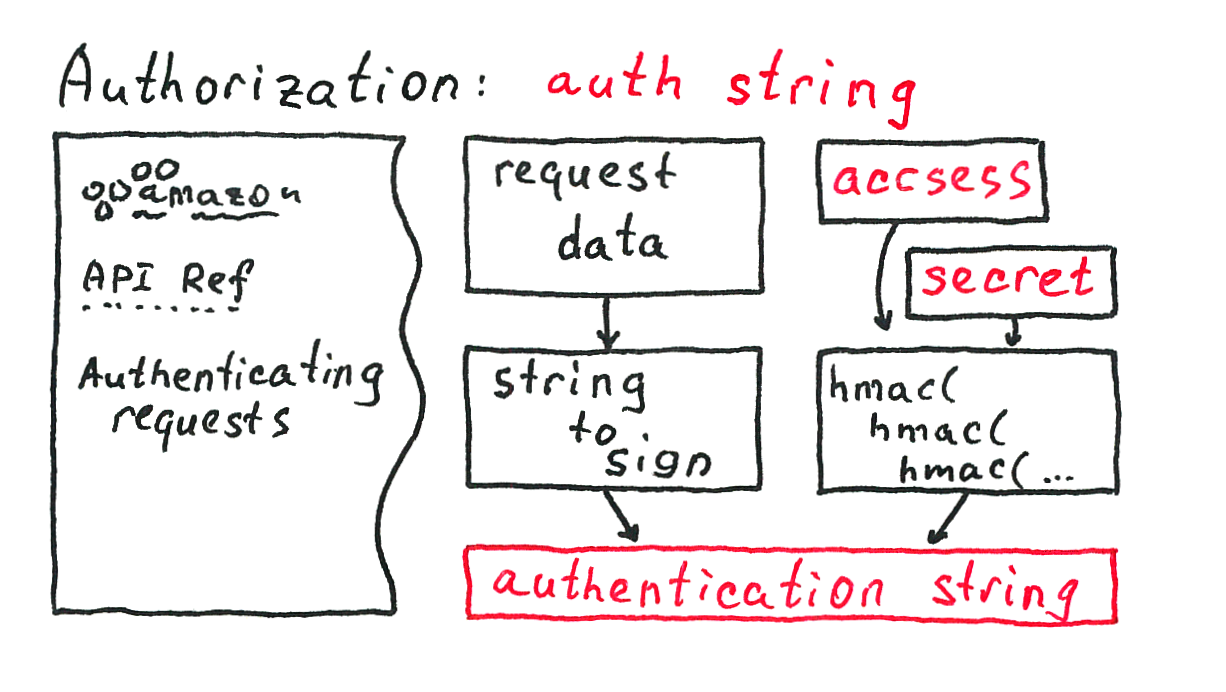 Authorization: auth string
amazon
API Ref
Authenticating
requests
request
data
string
to
sign
accsess
secret
hmac(
hmac(
hmac(...
authentication string